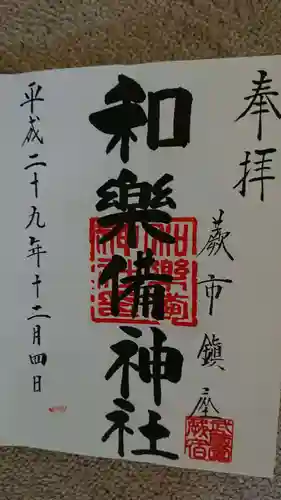 奉拝
蕨市鎮座
和樂備神社
平成二十九年十二月四日